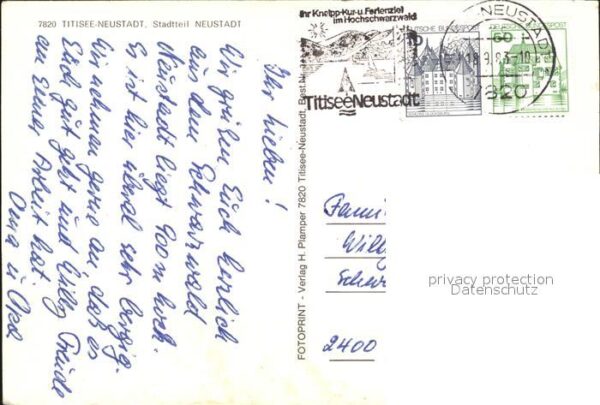 7820 TITISEE-NEUSTADT, Stadtteil NEUSTADT
Ihr Lieben!
Wir grüßen Euch herzlich
aus dem Schwarzwald
Neustadt liegt 900 m hoch.
Es ist hier überal sehr bergig.
Wir nehmen gerne an, daß es
Euch gut geht und Willy Freude
an seiner Arbeit hat.
Oma u Opa
FOTOPRINT - Verlag H. Plamper 7820 Titisee-Neustadt, Best.Nr.
Ihr Kneipp-Kur-u. Ferienziel
im Hochschwarzwald
TitiseeNeustadt
DEUTSCHE BUNDESPOST
10
60
NEUSTADT
18.9.83-10
7820
Fami
Willy
Schw
2400
privacy protection
Datenschutz